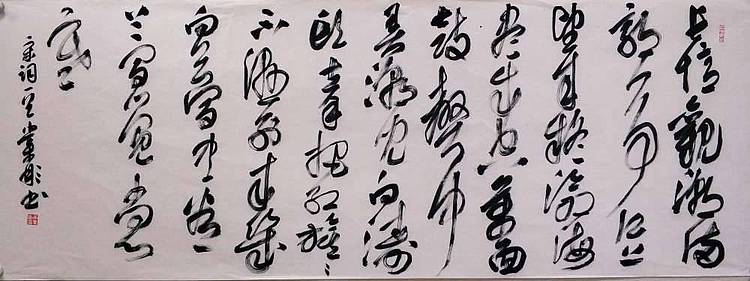 长憶觀潮满
郭人争江上
望來疑滄海
尽成空萬面
鼓聲中
弄潮兒向濤
頭立手把红旗〻
不濕别來幾
向夢中看
夢覺尚心
寒
宋词一首 书